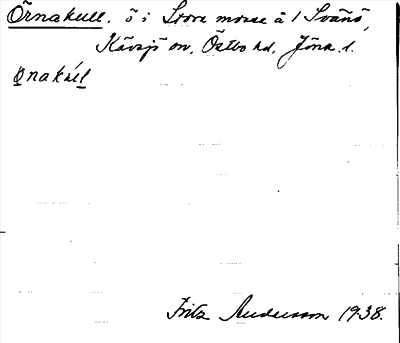 Örnakull. ö i Store mosse å 1 Svänö,
Kävsjö sn. Östbo hd. Jönk. l.
ɷnakúll
Fritz Andersson 1938.